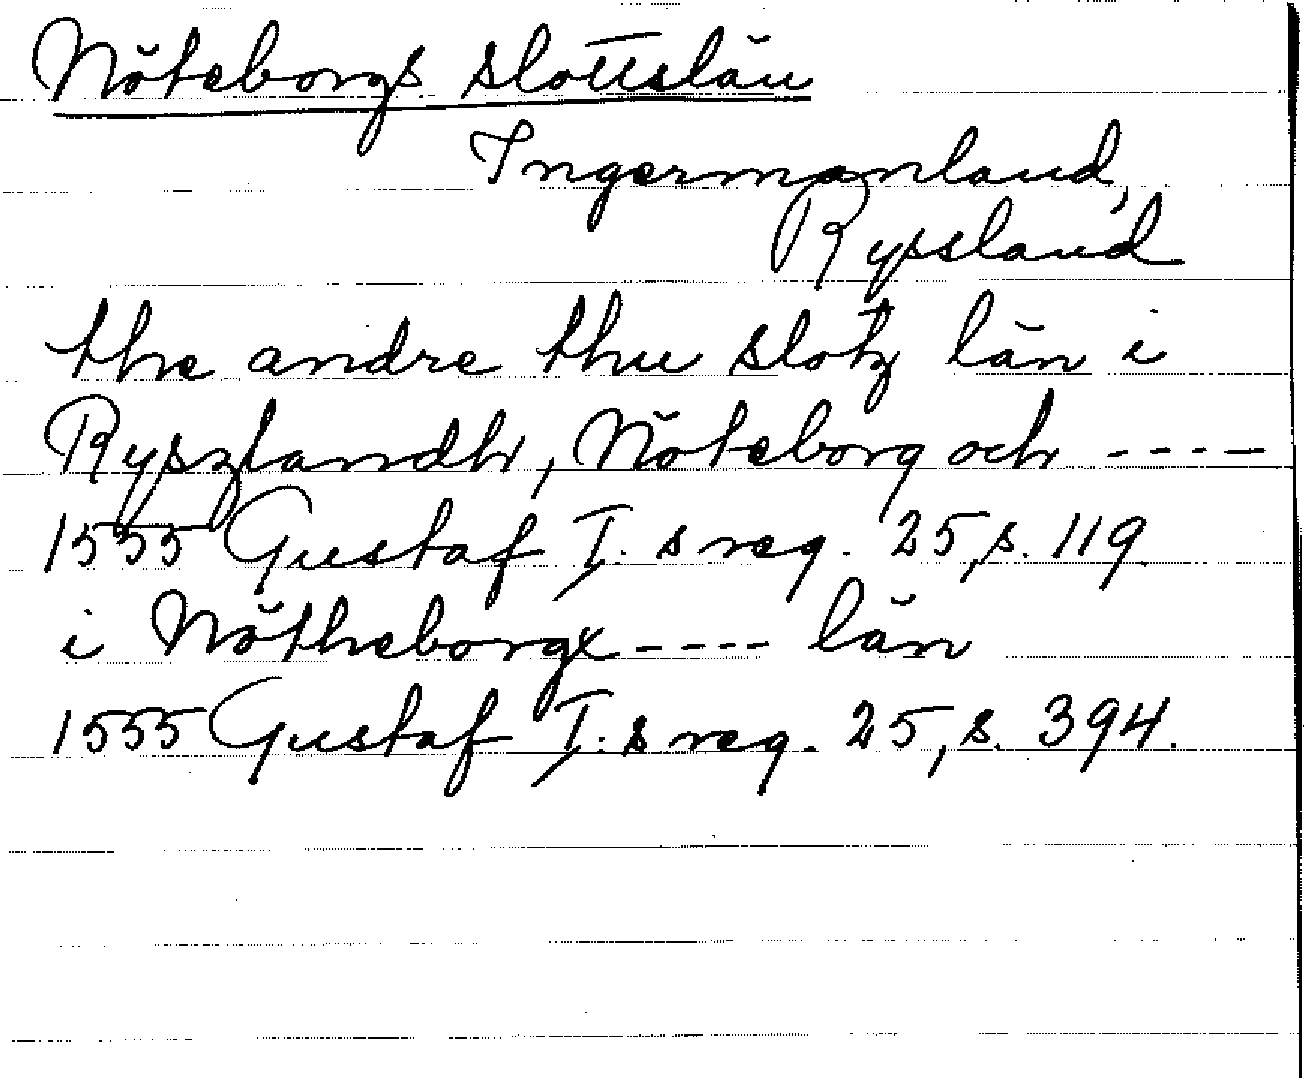 Nöteborgs slottslän
Ingermanland,
Ryssland
the andre thu slotz län i
Ryszlandh, Nöteborg och ----
1555 Gustaf I:s reg. 25, s. 119
i Nötheborgx ---- län
1555 Gustaf I:s reg. 25, s. 394.